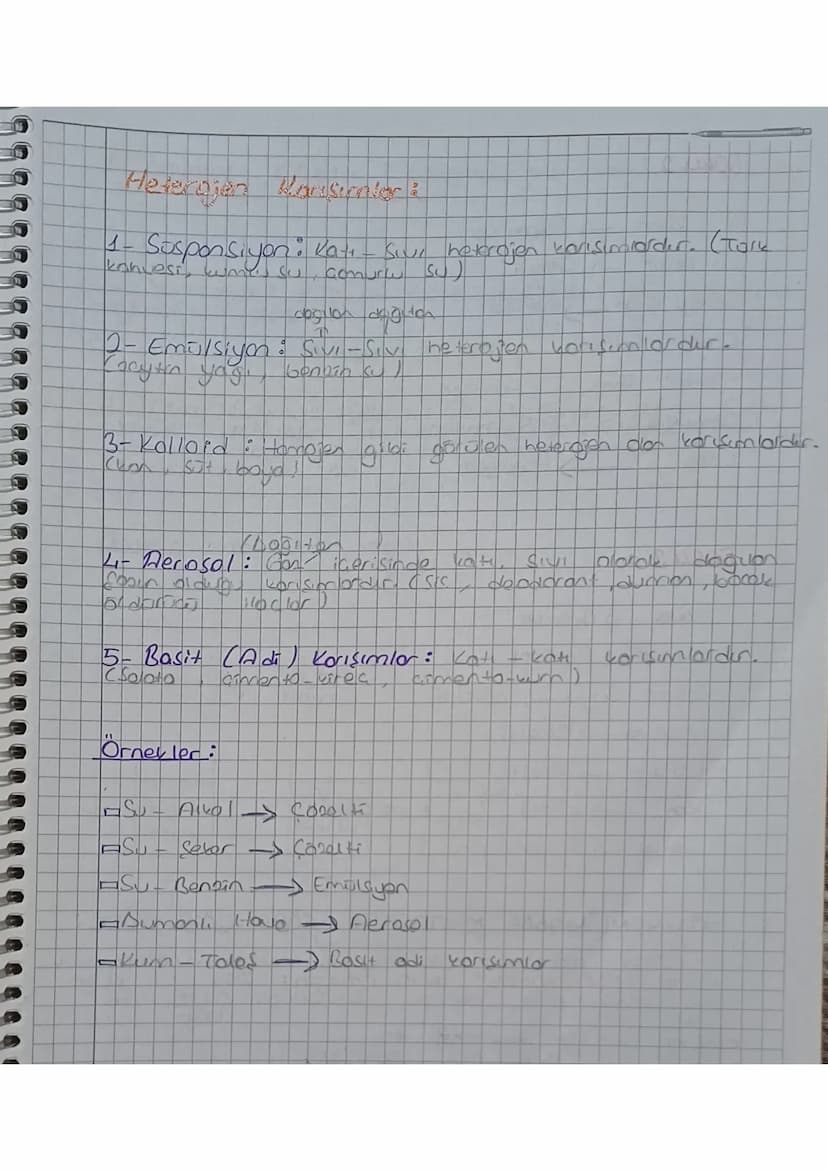 Heterojen Karışımlar:
1- Süspansiyon: Katı - Sıvı heterojen karışımlardır. (Türk
kahvesi, kumlu su, çamurlu su)
dağılan dağıtan
2- Emülsiyon: Sıvı-Sıvı heterojen karışımlardır.
(zeytin yağı, benzin su)
3- Kolloid: Homojen gibi görülen heterojen olan karışımlardır.
(kan, süt, boya)
(Dağıtan
4- Aerosol: Gaz içerisinde katı, sıvı olarak dağılan
karışımlardır (sis, deodorant, duman, böcek
öldürücü ilaçlar)
5- Basit (Adi) Karışımlar: Katı - katı karışımlardır.
(Salata, çimento-kireç, çimento-kum)
Örnekler:
Su - Alkol → Çözelti
Su - Şeker → Çözelti
Su - Benzin → Emülsiyon
Dumanlı Hava → Aerosol
Kum - Talaş → Basit adi karışımlar